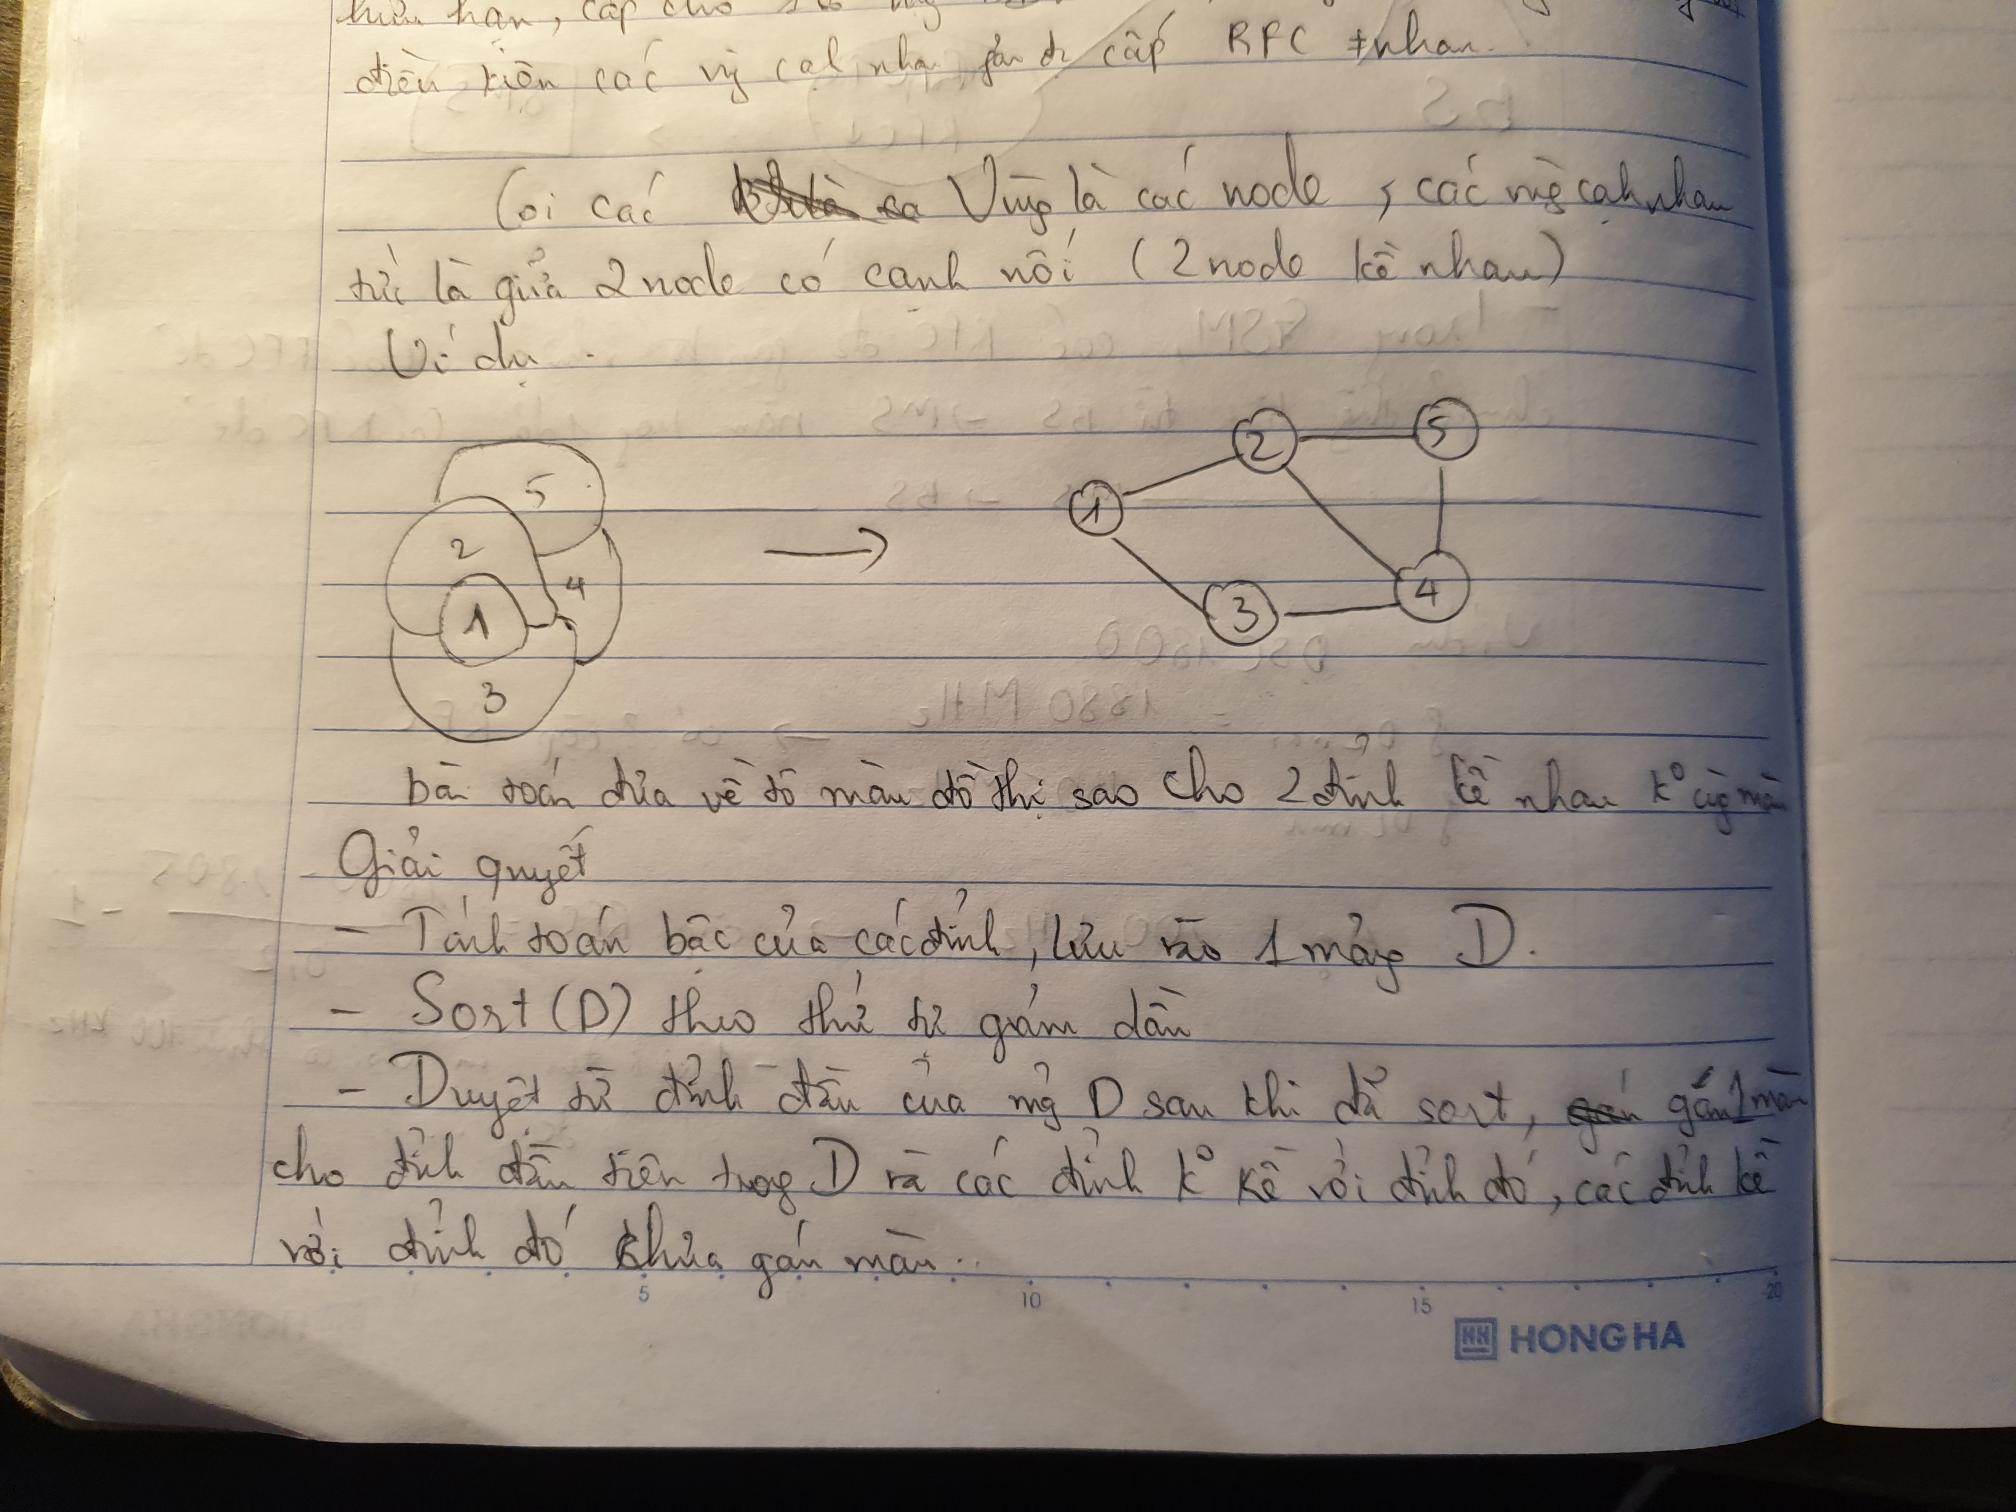 hữu hạn, cấp cho 1 số
điều kiện các vùng cạnh nhau gần đc cấp RFC ≠ nhau.
Coi các Vùng là các node, các vùng cạnh nhau
tức là giữa 2 node có cạnh nối (2 node kề nhau)
Ví dụ.
5
2
4
1
3
2
5
1
3
4
bài toán đưa về tô màu đồ thị sao cho 2 đỉnh kề nhau k° cùng màu
Giải quyết
- Tính toán bậc của các đỉnh, lưu vào 1 mảng D.
- Sort (D) theo thứ tự giảm dần
- Duyệt từ đỉnh đầu của mảng D sau khi đã sort, gán 1 màu
cho đỉnh đầu tiên trong D và các đỉnh k° kề với đỉnh đó, các đỉnh kề
với đỉnh đó chưa gán màu.
5 10 15 20
HONG HA